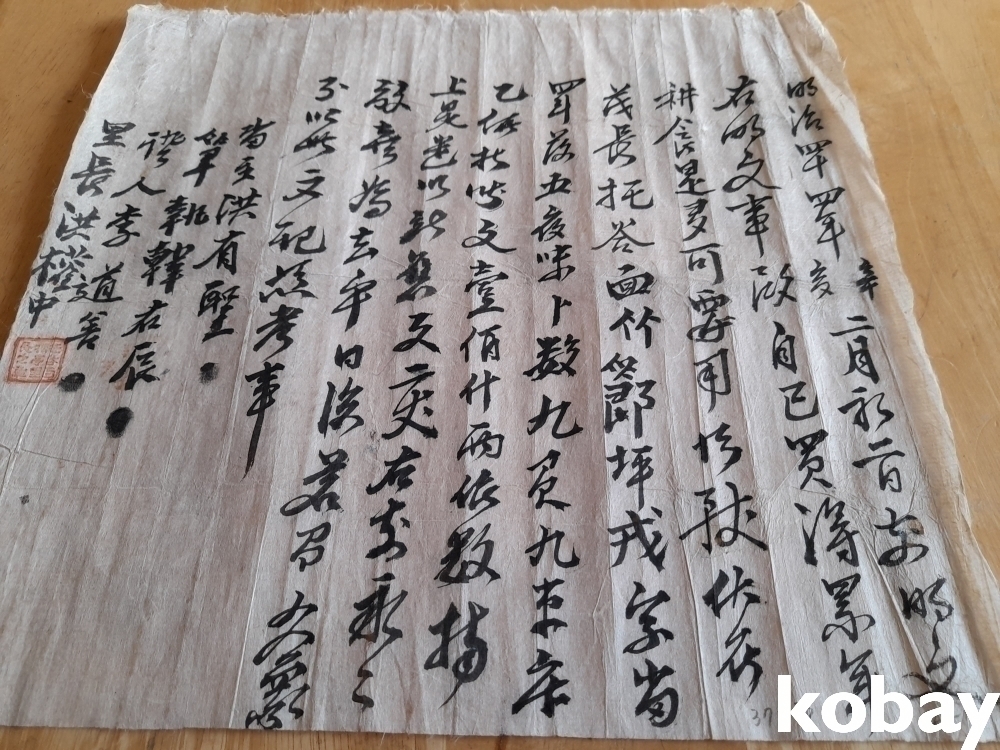 明治四十四年辛亥二月初二日前明文
右明文事段自己買得累年
耕食是多可要用所致伏在
茂長托谷面竹節坪戎字畓
四十落五夜味卜數九負九束庫
乙価折錢文壹佰什兩依數捧
上是遣以新舊文二丈右前永永
放賣爲去乎日後若有雜談
以此文記憑考事
畓主洪有聖
筆執韓右辰
證人李道善
里長洪中
kobay